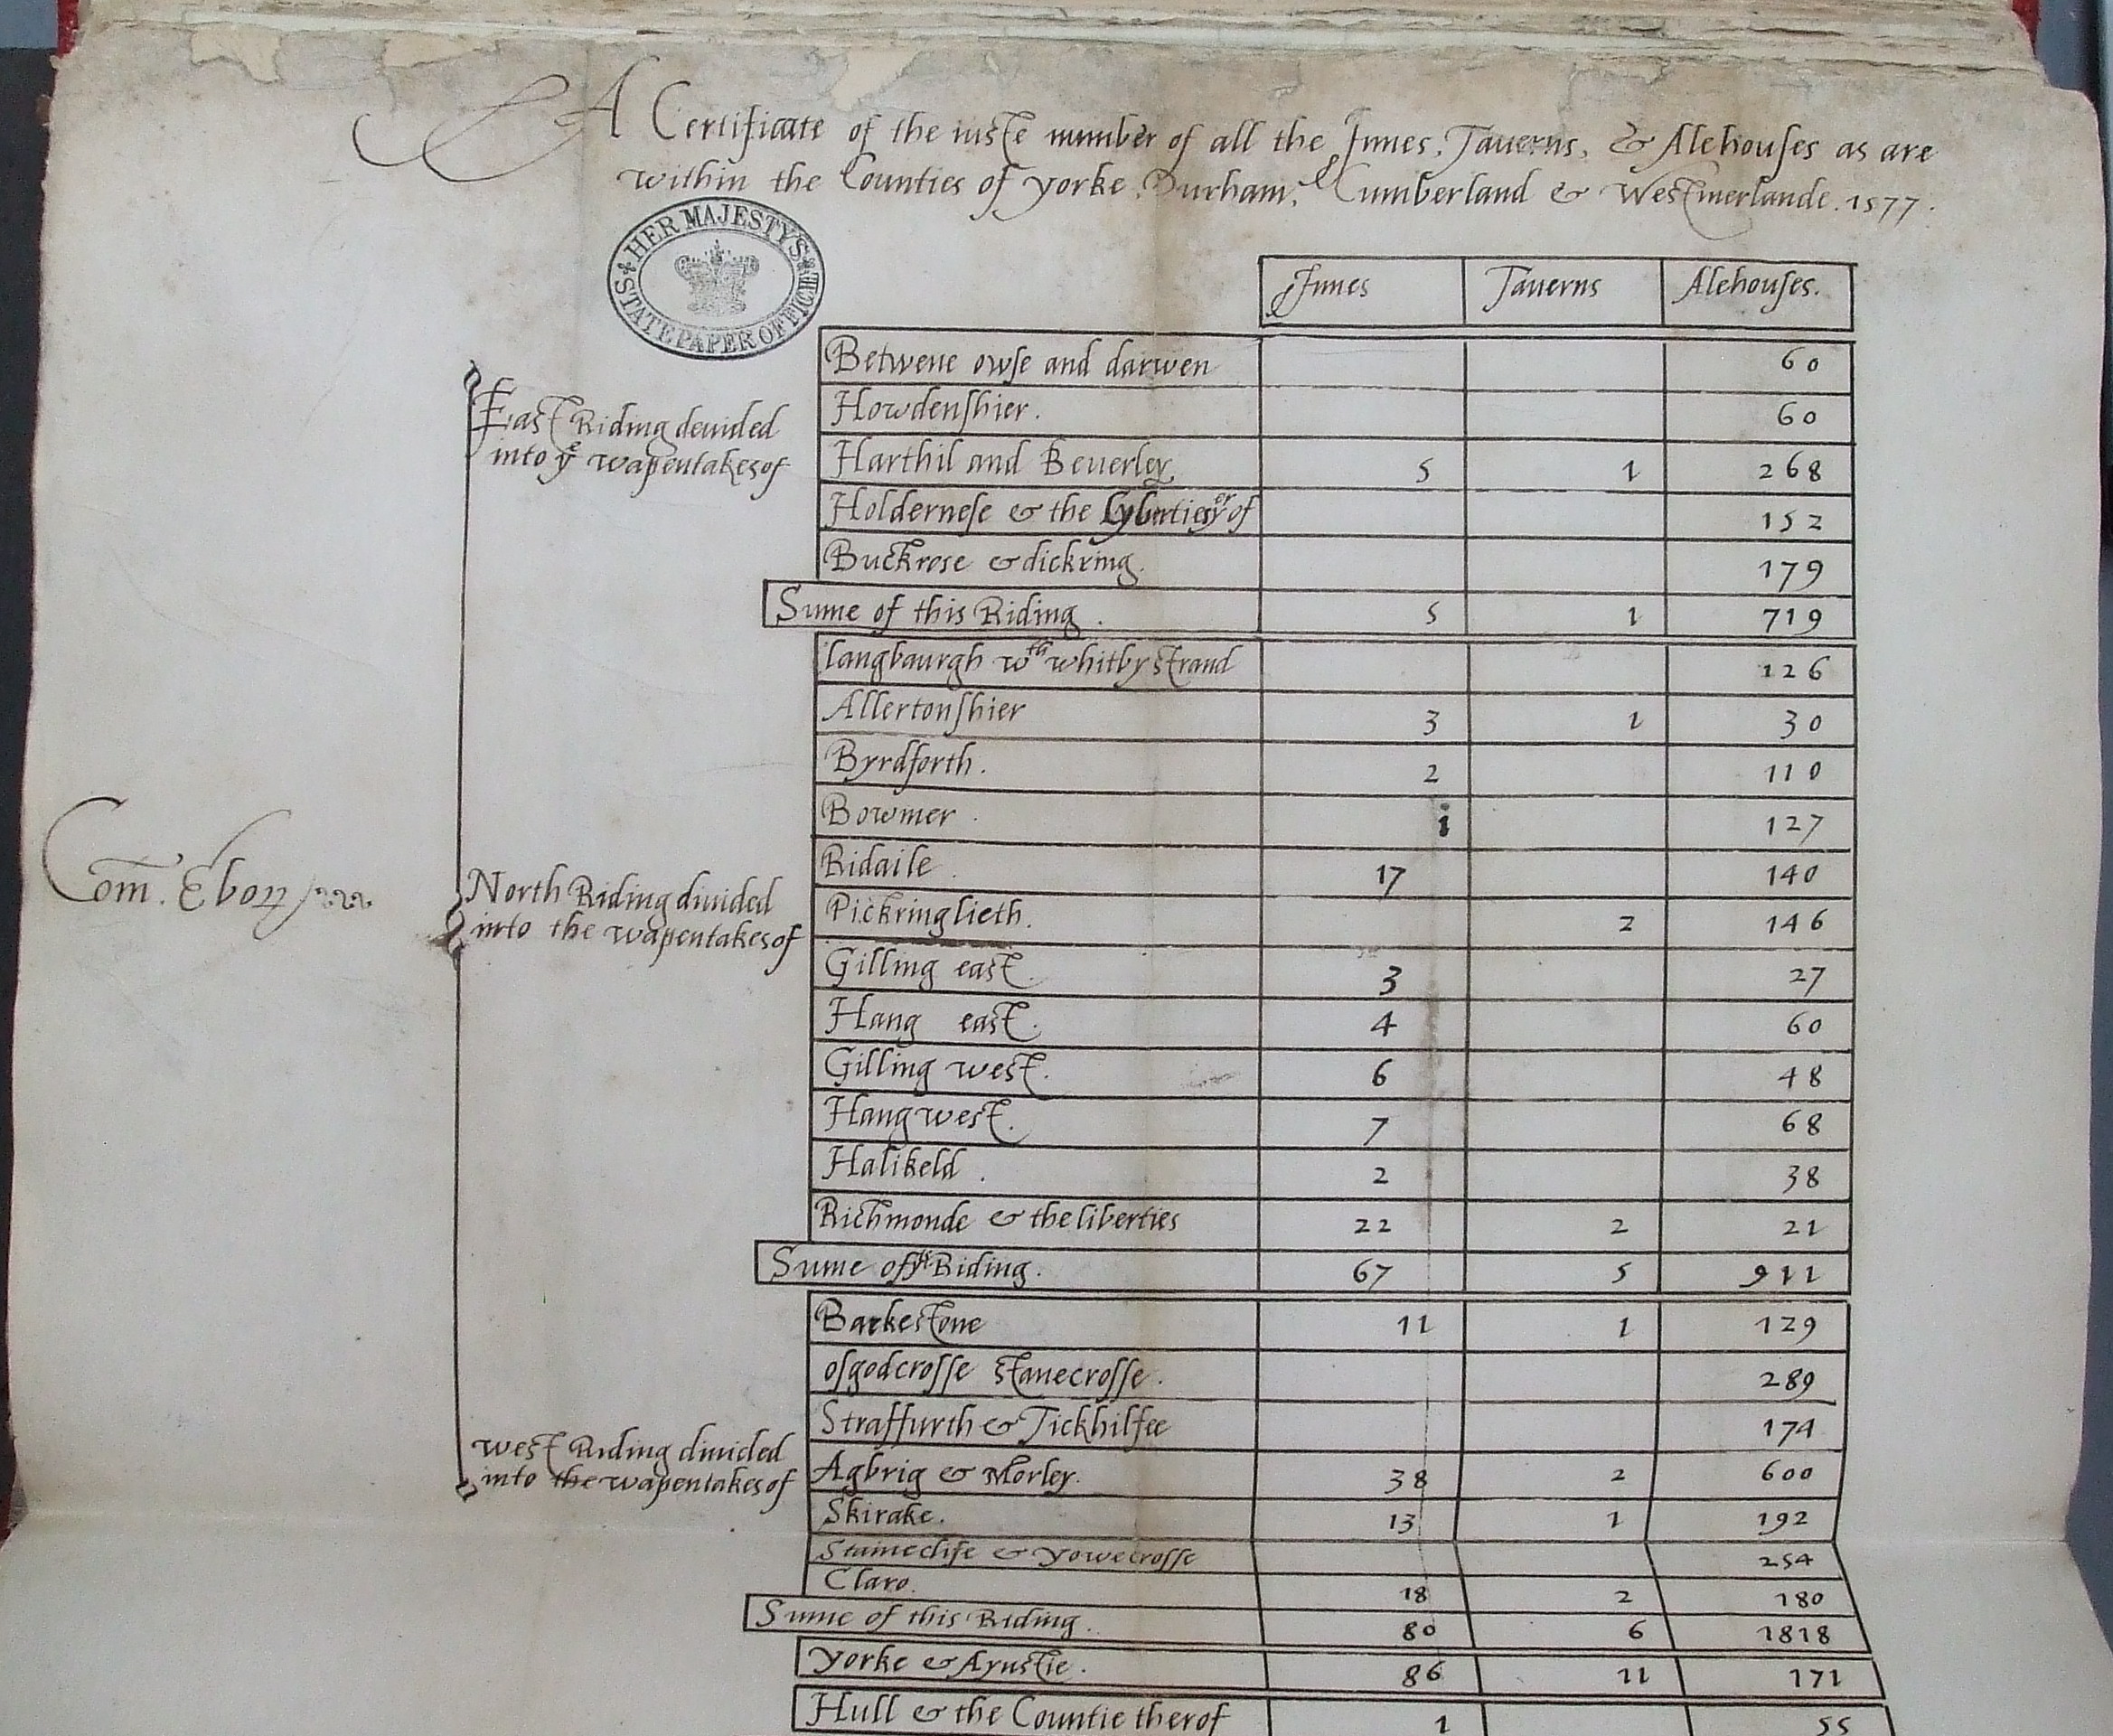 A Certificate of the iuste number of all the Innes, Tauerns, & Alehouses as are
within the Counties of yorke, Durham, Cumberland & Westmerlande. 1577.
HER MAJESTY'S STATE PAPER OFFICE
Innes Tauerns Alehouses.
Betwene owse and darwen 60
Howdenshier. 60
East Riding deuided
into ye wapentakes of
Harthil and Beuerley 5 1 268
Holdernese & the Lyberties of 152
Buckrose & dickring. 179
Sume of this Riding. 5 1 719
langbaurgh wth whitby strand 126
Allertonshier 3 1 30
Byrdforth. 2 110
Bowmer. 1 127
Com. Ebor
North Riding diuided
into the wapentakes of
Ridaile. 17 140
Pickringlieth. 2 146
Gilling east. 3 27
Hang east. 4 60
Gilling west. 6 48
Hang west. 7 68
Halikeld. 2 38
Richmonde & the liberties 22 2 21
Sume of Riding. 67 5 911
Barkestone 11 1 129
osgodcrosse stanecrosse. 289
Straffurth & Tickhilfee 174
west Riding diuided
into the wapentakes of
Agbrig & Morley. 38 2 600
Skirake. 13 1 192
Staineclife & yowecrosse 254
Claro. 18 2 180
Sume of this Riding. 80 6 1818
yorke & Aynstie. 86 11 171
Hull & the Countie therof 1 55